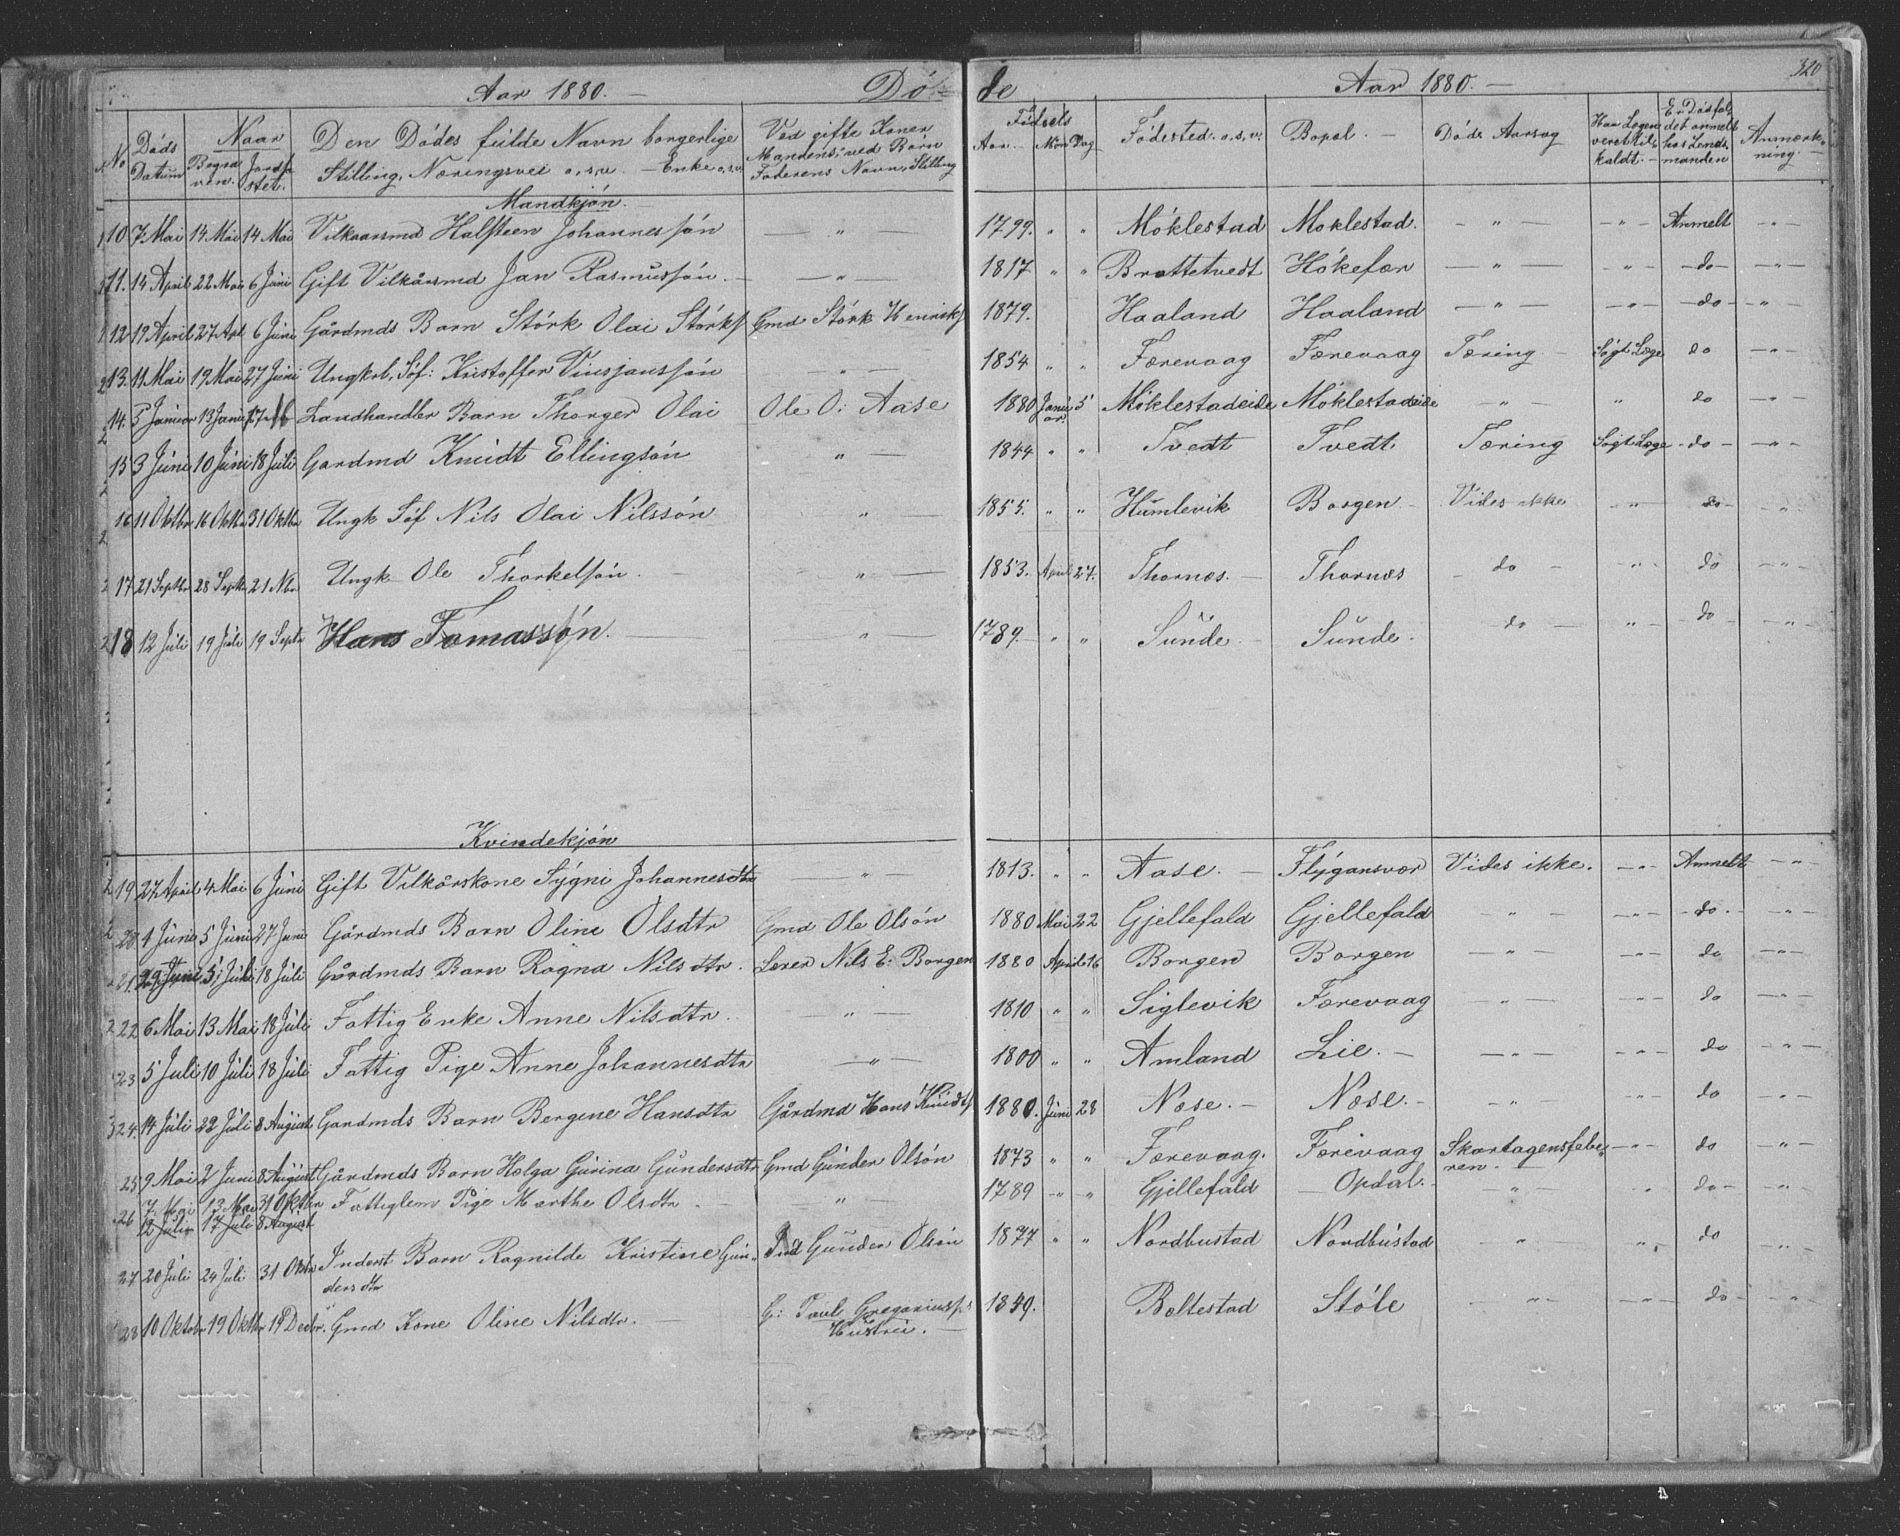 Aar 1880. — Dö de Aar 1880. — 320
No Döds Datum Naar Begraven Jordfæstet. Den Dödes fulde Navn borgerlige Stilling, Næringsvei o.s.v. — Enke o.s.v. Ved gifte Koner Mandens, ved Barn Faderens Navn, Stilling Födsels Aar Mön Dag Födested o.s.v. Bopel. — Döds Aarsag Har Lægen veret tilkaldt. Er Dödsfaldet anmelt hos Lensmanden Anmærkning.
Mandkjön.
10 7 Mai 14 Mai 14 Mai Vilkaarsmd Halsteen Johannessön — " — 1799. " " Möklestad Moklestad. - " — - " - Anmelt - " -
11. 14 April 22 Mai 6 Juni Gift Vilkårsmd Jan Rasmussön. — " — 1817 " " Brattetvedt Hökefær — " — - " - do - " -
12 19 April 27 Apl 6 Juni Gårdmds Barn Störk Olai Störks Gmd Störk Henriks 1879. Haaland Haaland — " — - " - do - " -
13. 11 Mai 19 Mai 27 Juni Ungkrl, Söf: Kristoffer Vinsjanssön " — 1854 " " Færevaag Færevaag Tæring - Sögt Læge do - " -
14. 5 Januar 13 Janu Landhandler Barn Thorger Olai Ole O: Aase 1880 Januar 5 Möklestadeide Möklestadeide - " — " do - " -
15 3 Juni 10 Juni 18 Juli Gardmd Knudt Ellingsön " — 1844 " " Tvedt Tvedt Tæring Sögt Læge do - " -
16 11 Oktbr 16 Oktbr 31 Oktbr Ungk Söf Nils Olai Nilssön " — 1855. " " Humlevik Borgen Vides ikke - " - do - " -
17 21 Septbr 28 Septbr 21 Nbr Ungk Ole Thorkelsön. " — 1853. April 27. Thornæs. Thornæs - do - - " - do - " -
18 12 Juli 19 Juli 19 Septr Hans Tomassön. " 1789. " " Sunde Sunde do - " - do - " -
Kvindekjön
19 27 April 4 Mai 6 Juni Gift Vilkårskone Sÿgni Johannesdtr — " — 1813. " " Aase. Flÿgansvær Vides ikke. - " - Anmelt - " -
20 4 June 5 Juni 27 Juni Gårdmds Barn Oline Olsdtr Gmd Ole Olsön 1880 Mai 22 Gjellefald Gjellefald - " — - " - do. - " -
21. 29 Juni 5 Juli 18 Juli Gårdmds Barn Ragna Nils dtr. Lærer Nils E: Borgen 1880 April 16 Borgen Borgen - " — - " - do - " -
22 6 Mai 13 Mai 18 Juli Fattig Enke Anne Nilsdtr. — " — 1810 " " Siglevik Færevaag - " — - " - do - " -
23 5 Juli 10 Juli 18 Juli Fattig Pige Anne Johannesdtr — " — 1800 " " Amland Lie. — " — - " - do - " -
24. 14 Juli 22 Juli 8 August Gardmds Barn Bergine Hansdtr Gårdmd Hans Knudts 1880. Juni 28 Næse. Næse. - " — - " - do - " -
25 9 Mai 2 Juni 8 August Gårdmds Barn Helga Gurina Gundersdtr Gmd Gunder Olsön 1873 " " Færevaag. Færevaag Skarlagensfeberen. - " - do - " -
26 7 Mai 13 Mai 31 Oktbr Fattiglem Pige Marthe Olsdtr — " — 1789 " " Gjellefald Opdal. " — do - " -
12 Juli 17 Juli 8 August
27. 20 Juli 24 Juli 31 Oktbr Inderst Barn Ragnilde Kristine Gun- Ind Gunder Olsön 1877 " " Nordbustad Nordbustad " " do - " -
dersdtr
28 10 Oktobr 19 Oktbr 19 Decbr. Gmd Kone Oline Nilsdtr. G: Paul Gregoriuss: 1849. Beltestad Störe - " — - " - do - " -
Hustru.